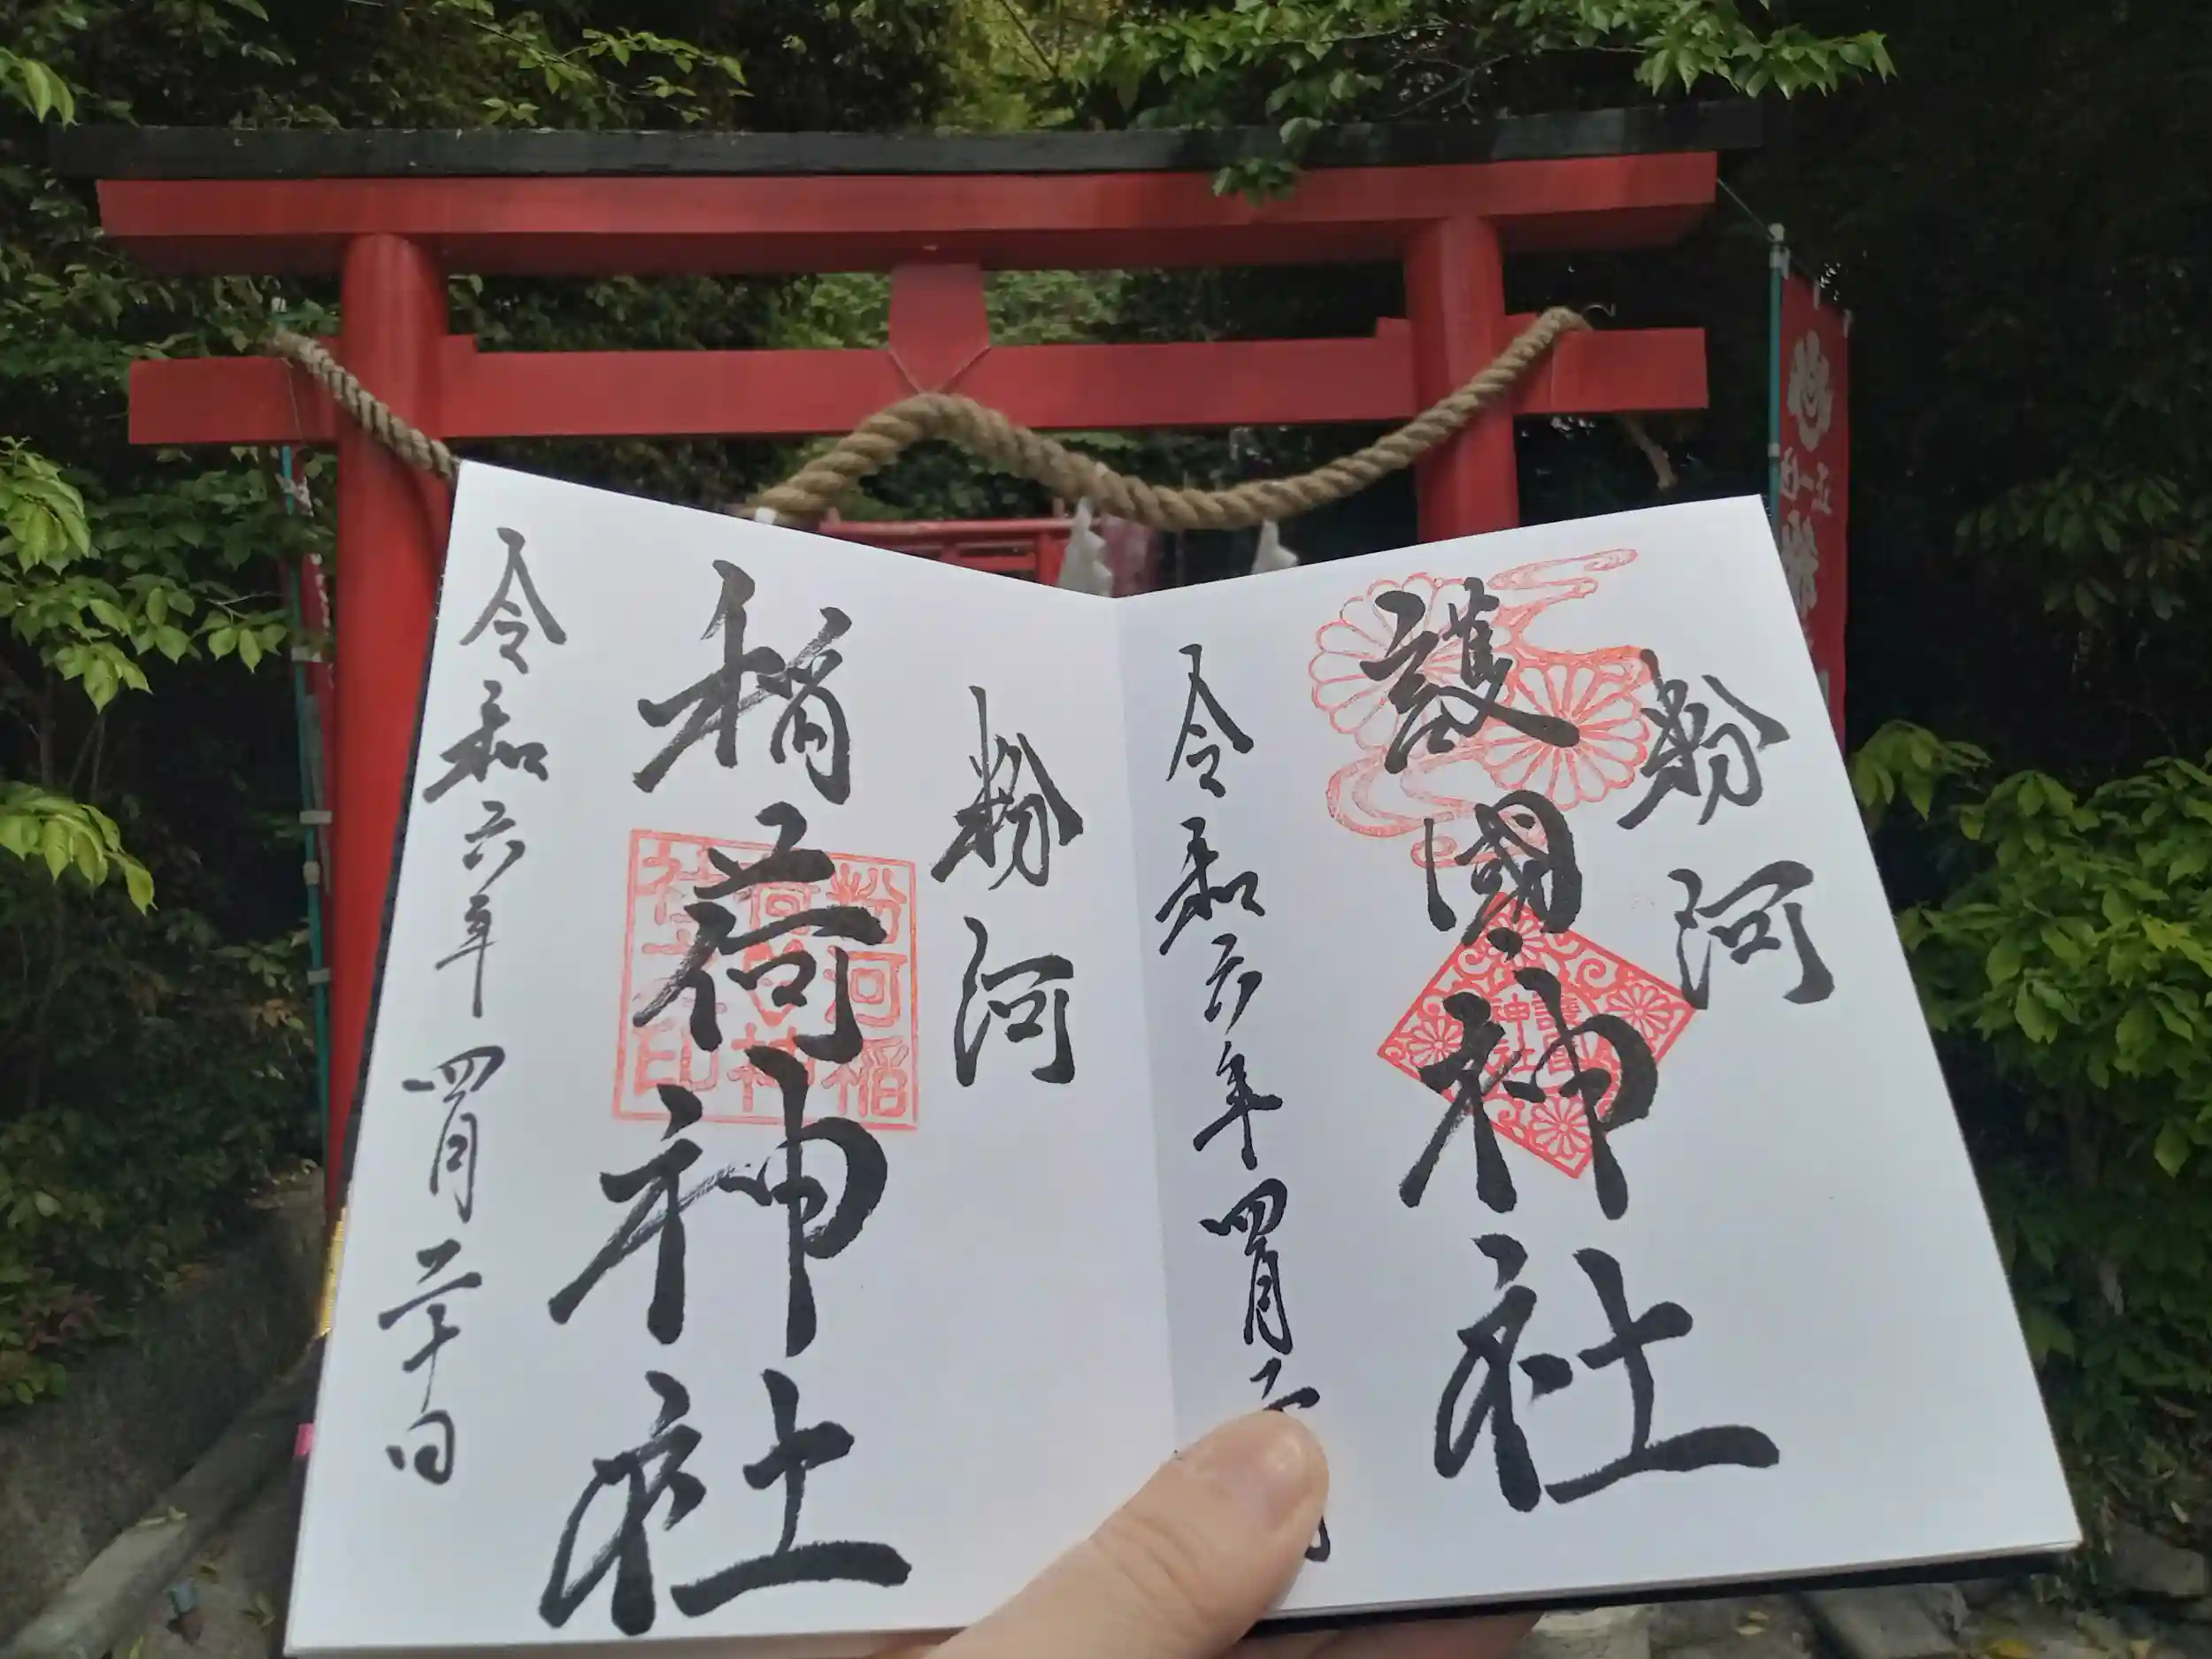 粉河
護國神社
護國神社
令和六年四月二
粉河
稲荷神社
粉河稲
社之印
令和六年四月二十日
正一位